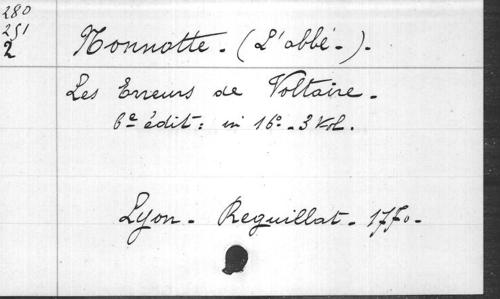 280
251
2
Nonnotte. (L'abbé-).
Les Erreurs de Voltaire.
6e édit: in 16°. 3 Vol.
Lyon. Reguillat. 1770.